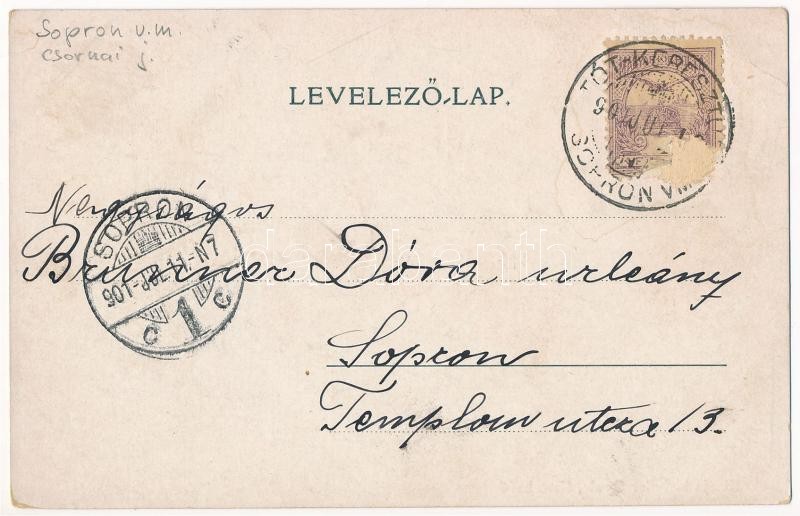 Sopron v.m.
Csornai j.
LEVELEZŐ-LAP.
TÓT-KERESZTÚR
SOPRON VM
SOPRON
901-JUL 11-N7
C 1 C
Nagyságos
Brunner Dóra urleány
Sopron
Templom utcza 13.
darabanth